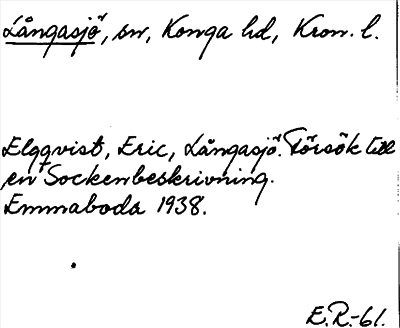 Långasjö, sn, Konga hd, Kron. l.
Elgqvist, Eric, Långasjö. Försök till
en Sockenbeskrivning.
Emmaboda 1938.
E.R.-61.